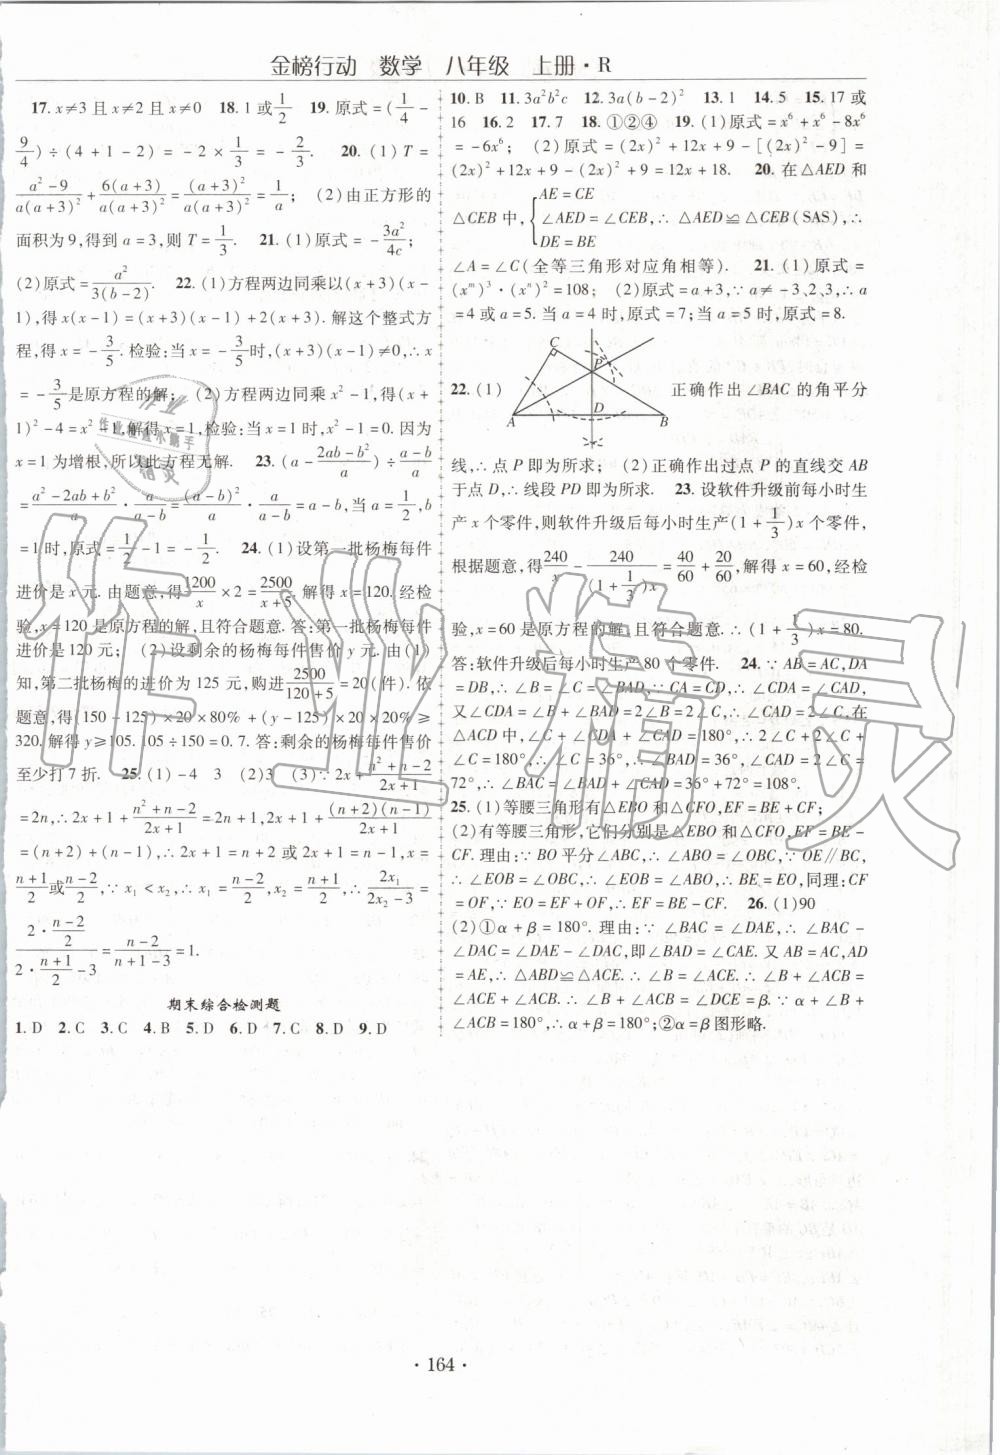 金榜行动 数学 八年级 上册·R
17. x≠3且x≠2且x≠0 18. 1或1/2 19. 原式=(1/4-
9/4)÷(4+1-2)=-2×1/3=-2/3. 20. (1)T=
(a²-9)/(a(a+3)²)+6(a+3)/(a(a+3)²)=(a+3)²/(a(a+3)²)=1/a; (2)由正方形的
面积为9,得到a=3,则T=1/3. 21. (1)原式=-3a²/4c;
(2)原式=a²/(3(b-2)). 22. (1)方程两边同乘以(x+3)(x-
1),得x(x-1)=(x+3)(x-1)+2(x+3). 解这个整式方
程,得x=-3/5. 检验:当x=-3/5时,(x+3)(x-1)≠0,∴x
=-3/5是原方程的解; (2)方程两边同乘x²-1,得(x+
1)²-4=x²-1,解得x=1,检验:当x=1时,x²-1=0,因为
x=1为增根,所以此方程无解. 23. (a-(2ab-b²)/a)÷(a-b)/a
=(a²-2ab+b²)/a·a/(a-b)=(a-b)²/a·a/(a-b)=a-b,当a=1/2,b
=1时,原式=1/2-1=-1/2. 24. (1)设第一批杨梅每件
进价是x元. 由题意,得1200/x×2=2500/(x+5). 解得x=120. 经检
验,x=120是原方程的解,且符合题意. 答:第一批杨梅每件
进价是120元; (2)设剩余的杨梅每件售价y元. 由(1)
知,第二批杨梅的进价为125元,购进2500/(120+5)=20(件). 依
题意,得(150-125)×20×80%+(y-125)×20×20%≥
320. 解得y≥105. 105÷150=0.7. 答:剩余的杨梅每件售价
至少打7折. 25. (1)-4 3 (2)3 (3)∵2x+(n²+n-2)/(2x+1)
=2n,∴2x+1+(n²+n-2)/(2x+1)=2n+1,2x+1+(n+2)(n-1)/(2x+1)
=(n+2)+(n-1),∴2x+1=n+2或2x+1=n-1,x=
(n+1)/2或(n-2)/2,∵x₁<x₂,∴x₁=(n-2)/2,x₂=(n+1)/2,∴2x₁/(2x₂-3)=
(2·(n-2)/2)/(2·(n+1)/2-3)=(n-2)/(n+1-3)=1.
期末综合检测题
1. D 2. C 3. C 4. B 5. D 6. D 7. C 8. D 9. D
10. B 11. 3a²b²c 12. 3a(b-2)² 13. 1 14. 5 15. 17或
16 16. 2 17. 7 18. ①②④ 19. (1)原式=x⁶+x⁶-8x⁶
=-6x⁶; (2)原式=(2x)²+12x+9-[(2x)²-9]=
(2x)²+12x+9-(2x)²+9=12x+18. 20. 在△AED和
△CEB中,{AE=CE
∠AED=∠CEB,∴△AED≌△CEB(SAS),∴
DE=BE
∠A=∠C(全等三角形对应角相等). 21. (1)原式=
(xᵐ)³·(xⁿ)²=108; (2)原式=a+3,∵a≠-3、2、3,∴a
=4或a=5. 当a=4时,原式=7;当a=5时,原式=8.
22. (1) C P A D B 正确作出∠BAC的角平分
线,∴点P即为所求; (2)正确作出过点P的直线交AB
于点D,∴线段PD即为所求. 23. 设软件升级前每小时生
产x个零件,则软件升级后每小时生产(1+1/3)x个零件,
根据题意,得240/x-240/((1+1/3)x)=40/60+20/60,解得x=60,经检
验,x=60是原方程的解,且符合题意. ∴(1+1/3)x=80.
答:软件升级后每小时生产80个零件. 24. ∵AB=AC,DA
=DB,∴∠B=∠C=∠BAD,∵CA=CD,∴∠CDA=∠CAD,
又∠CDA=∠B+∠BAD=2∠B=2∠C,∴∠CAD=2∠C,在
△ACD中,∠C+∠CDA+∠CAD=180°,∴2∠C+2∠C+
∠C=180°,∴∠C=36°,∴∠BAD=36°,∠CAD=2∠C=
72°,∴∠BAC=∠BAD+∠CAD=36°+72°=108°.
25. (1)等腰三角形有△EBO和△CFO,EF=BE+CF;
(2)有等腰三角形,它们分别是△EBO和△CFO,EF=BE-
CF. 理由:∵BO平分∠ABC,∴∠ABO=∠OBC,∵OE∥BC,
∴∠EOB=∠OBC,∴∠EOB=∠ABO,∴BE=EO,同理:CF
=OF,∵EO=EF+OF,∴EF=BE-CF. 26. (1)90
(2)①α+β=180°. 理由:∵∠BAC=∠DAE,∴∠BAC-
∠DAC=∠DAE-∠DAC,即∠BAD=∠CAE. 又AB=AC,AD
=AE,∴△ABD≌△ACE. ∴∠B=∠ACE. ∴∠B+∠ACB=
∠ACE+∠ACB. ∴∠B+∠ACB=∠DCE=β. ∵α+∠B+
∠ACB=180°,∴α+β=180°;②α=β图形略.
作业精灵
·164·